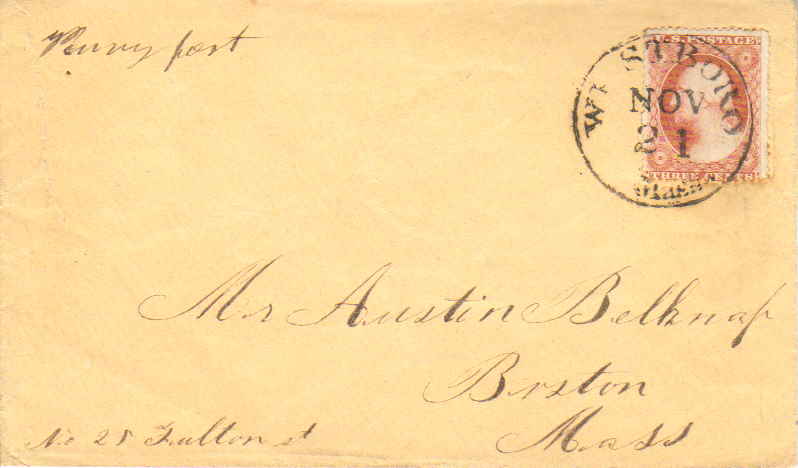 Penny post
U.S. POSTAGE
WESTBORO
NOV
21
MASS
THREE CENTS
Mr Austin Belknap
Boston
Mass
No 25 Fulton st